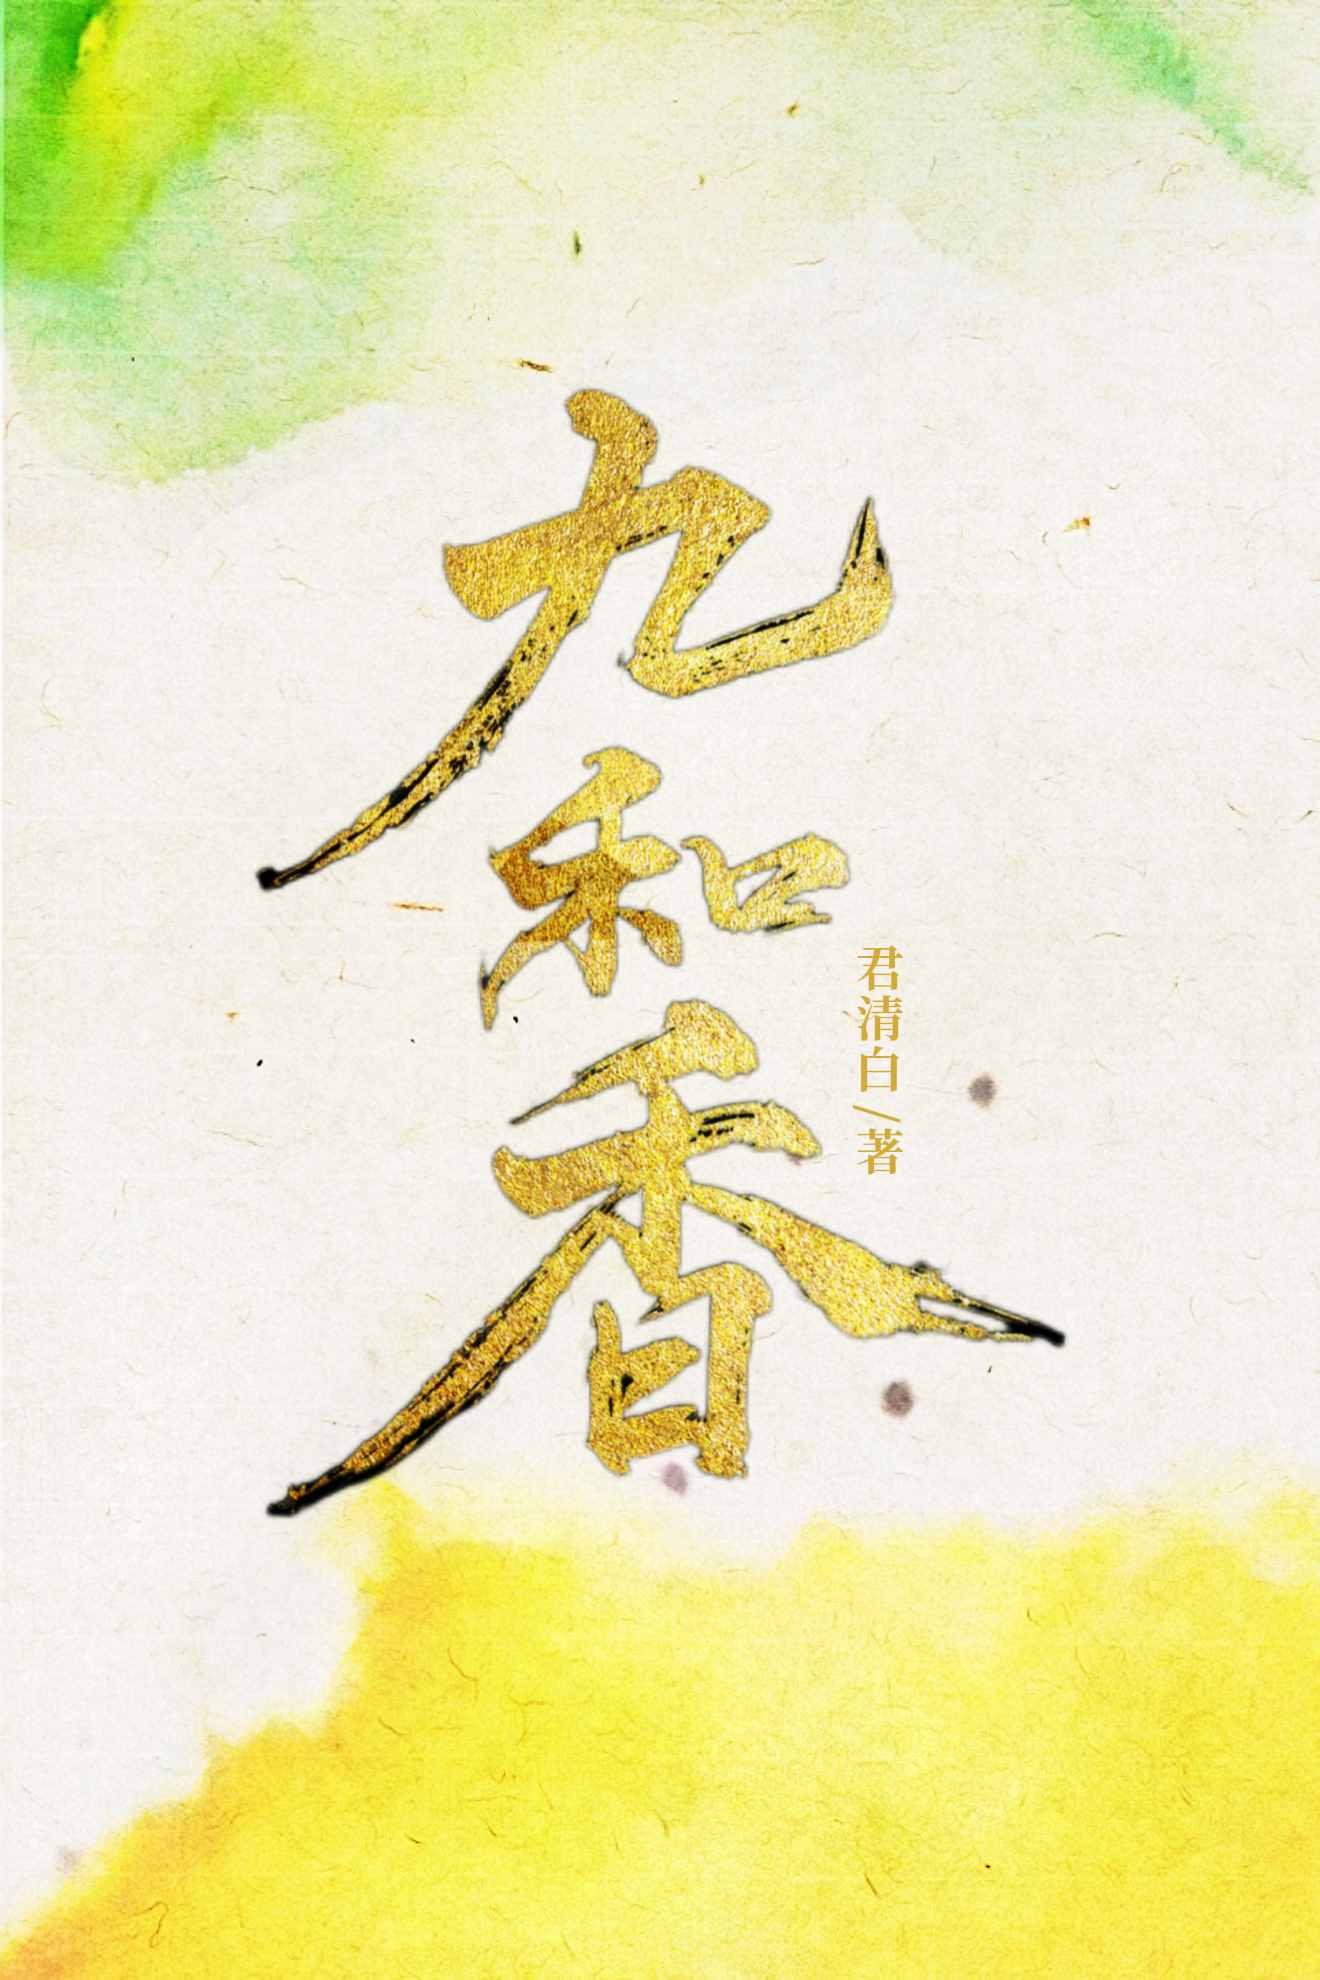 九和香
君清白/著